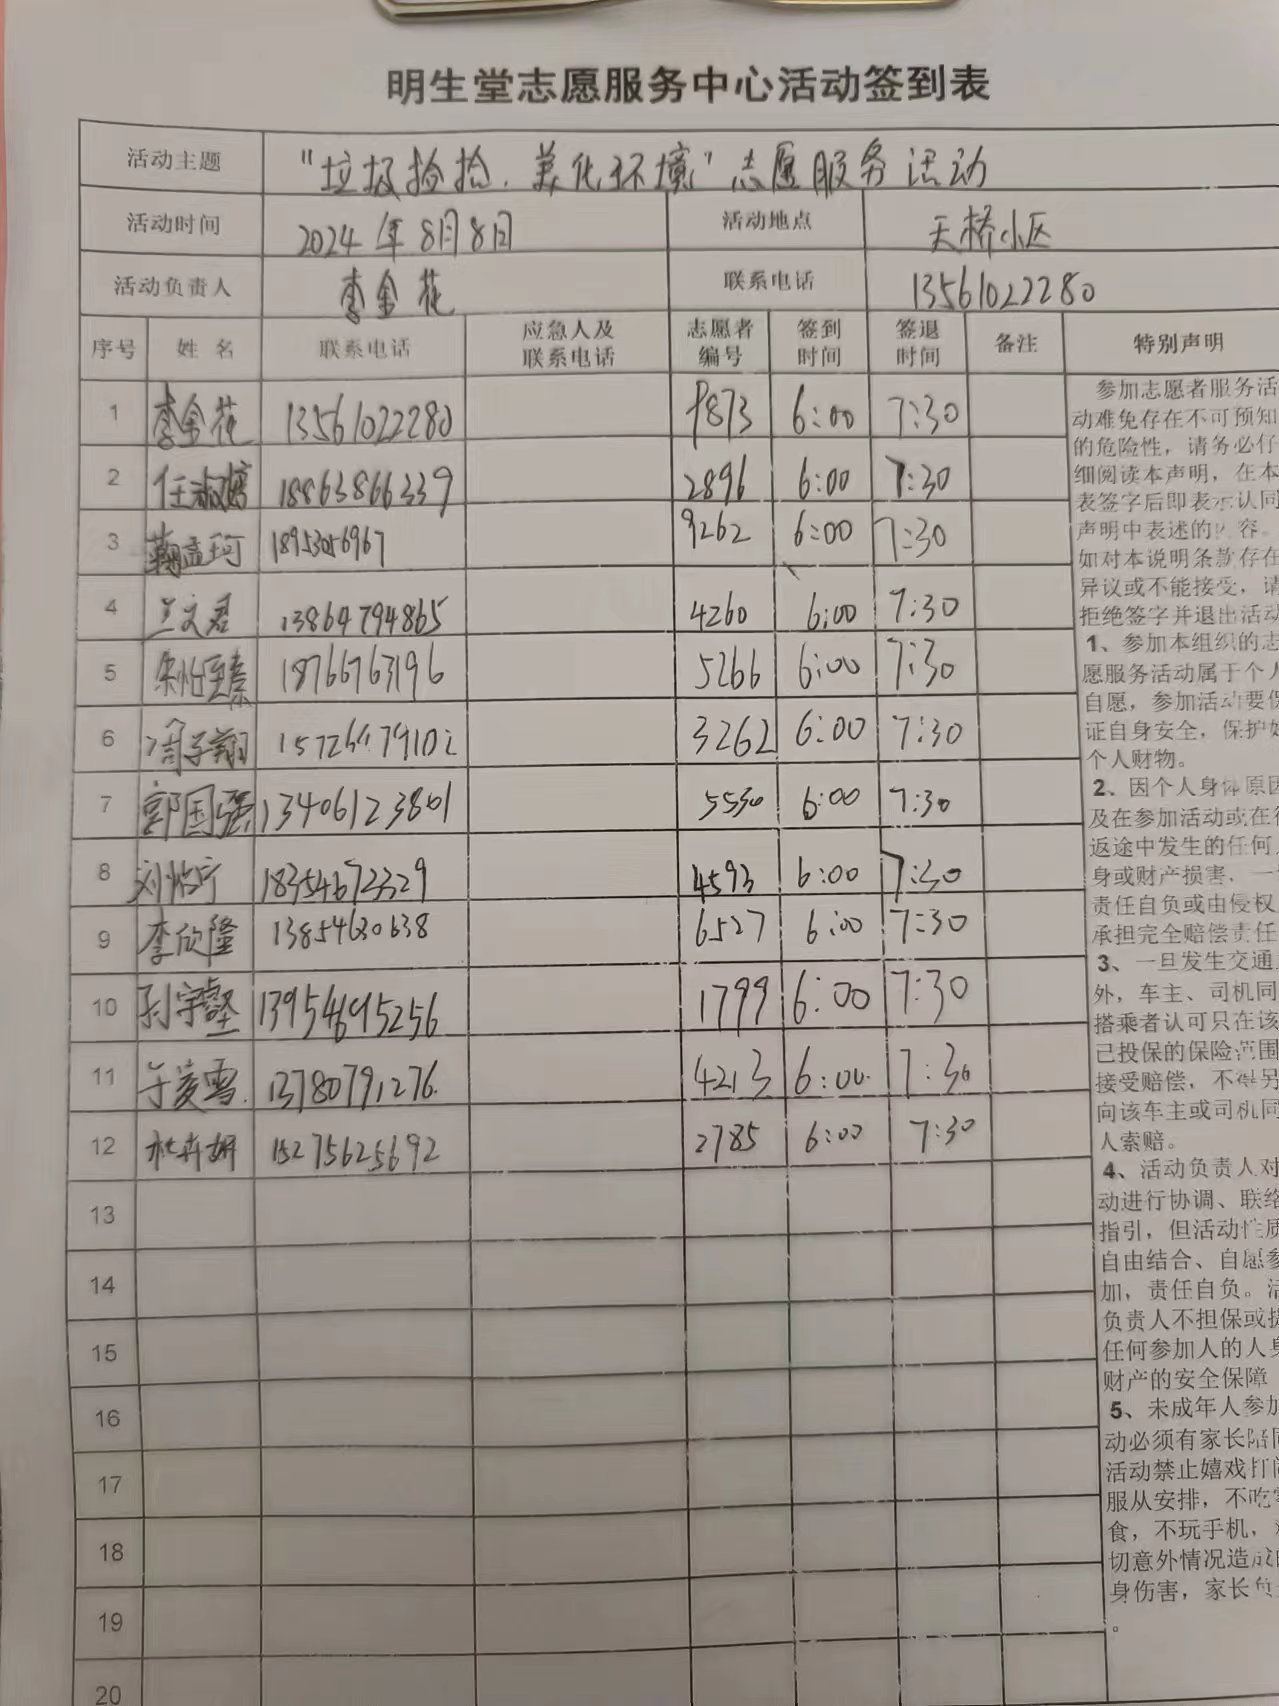 明生堂志愿服务中心活动签到表
活动主题 "垃圾捡拾、美化环境"志愿服务活动
活动时间 2024年8月8日 活动地点 天桥小区
活动负责人 李金花 联系电话 13561022280
序号 姓名 联系电话 应急人及联系电话 志愿者编号 签到时间 签退时间 备注 特别声明
1 李金花 13561022280 9873 6:00 7:30
2 任淑婷 18863866339 2896 6:00 7:30
3 鞠孟珂 9262 6:00 7:30
4 兰文君 13864794865 4260 6:00 7:30
5 朱怡臻 18766763196 5266 6:00 7:30
6 周子翔 3262 6:00 7:30
7 郭国强 13406123801 5530 6:00 7:30
8 刘怡宁 18354672329 4593 6:00 7:30
9 李欣隆 13854630638 6527 6:00 7:30
10 1799 6:00 7:30
11 于凌雪 13780791276 4213 6:00 7:30
12 杜卉妍 15275625692 2785 6:00 7:30
13
14
15
16
17
18
19
20
参加志愿者服务活
动难免存在不可预知
的危险性，请务必仔
细阅读本声明，在本
表签字后即表示认同
声明中表述的内容。
如对本说明条款存在
异议或不能接受，请
拒绝签字并退出活动
1、参加本组织的志
愿服务活动属于个人
自愿，参加活动要保
证自身安全，保护好
个人财物。
2、因个人身体原因
及在参加活动或在往
返途中发生的任何人
身或财产损害，一
责任自负或由侵权
承担完全赔偿责任
3、一旦发生交通
外，车主、司机同
搭乘者认可只在该
己投保的保险范围
接受赔偿，不得另
向该车主或司机同
人索赔。
4、活动负责人对
动进行协调、联络
指引，但活动性质
自由结合、自愿参
加，责任自负。活
负责人不担保或提
任何参加人的人身
财产的安全保障
5、未成年人参加
动必须有家长陪同
活动禁止嬉戏打闹
服从安排，不吃零
食，不玩手机，
切意外情况造成的
身伤害，家长负
。